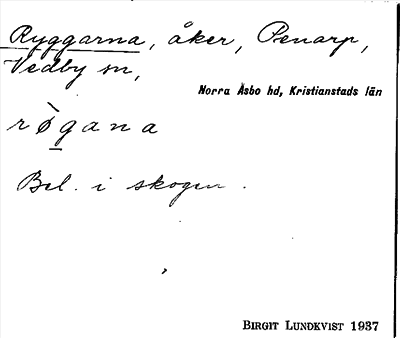 Ryggarna, åker, Penarp,
Vedby sn,
Norra Åsbo hd, Kristianstads län
rø̀gana
Bel. i skogen.
BIRGIT LUNDKVIST 1937